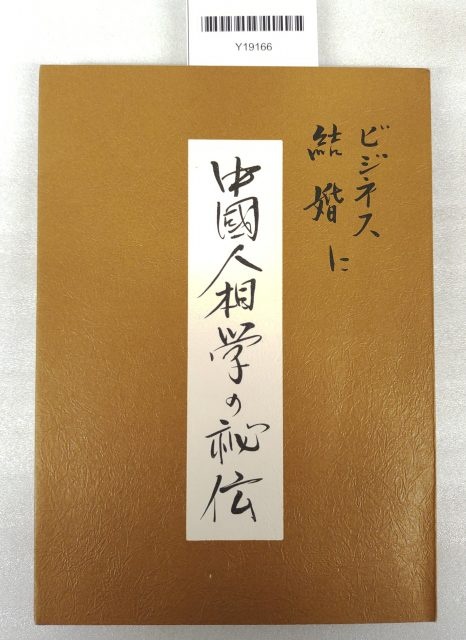 Y19166
ビジネス
結婚に
中國人相学の秘伝